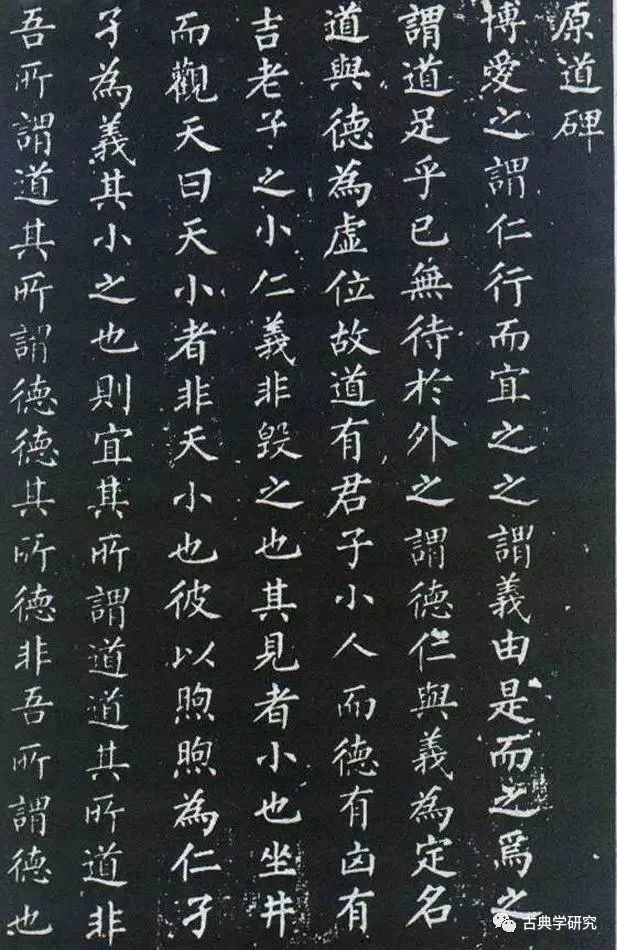 原道碑
博愛之謂仁行而宜之之謂義由是而之焉之
謂道足乎已無待於外之謂德仁與義為定名
道與德為虛位故道有君子小人而德有凶有
吉老子之小仁義非毀之也其見者小也坐井
而觀天曰天小者非天小也彼以煦煦為仁孑
孑為義其小之也則宜其所謂道道其所道非
吾所謂道其所謂德德其所德非吾所謂德也
古典学研究